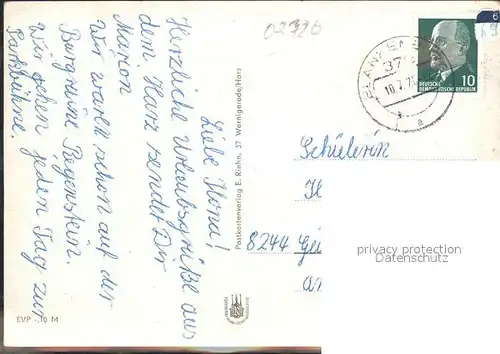 02726
Liebe Ilona!
Herzliche Urlaubsgrüße aus
dem Harz sendet Dir
Marion
Wir waren schon auf der
Burgruine Regenstein.
Wir gehen jeden Tag zur
Parkbühne.
EVP -,10 M
Postkartenverlag E. Riehn, 37 Wernigerode/Harz
BLANKENBURG
10.7.
a
DEUTSCHE
DEMOKRATISCHE REPUBLIK
10
6
Schülerin
8244
privacy protection
Datenschutz